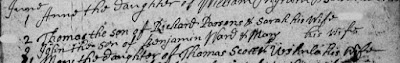 June
1 Anne the Daughter of William
2 Thomas the son of Richard Parsons & Sarah his Wife
2 John the son of Benjamin Ward & Mary his Wife
Mary the Daughter of Thomas Scott & Ursula his Wife